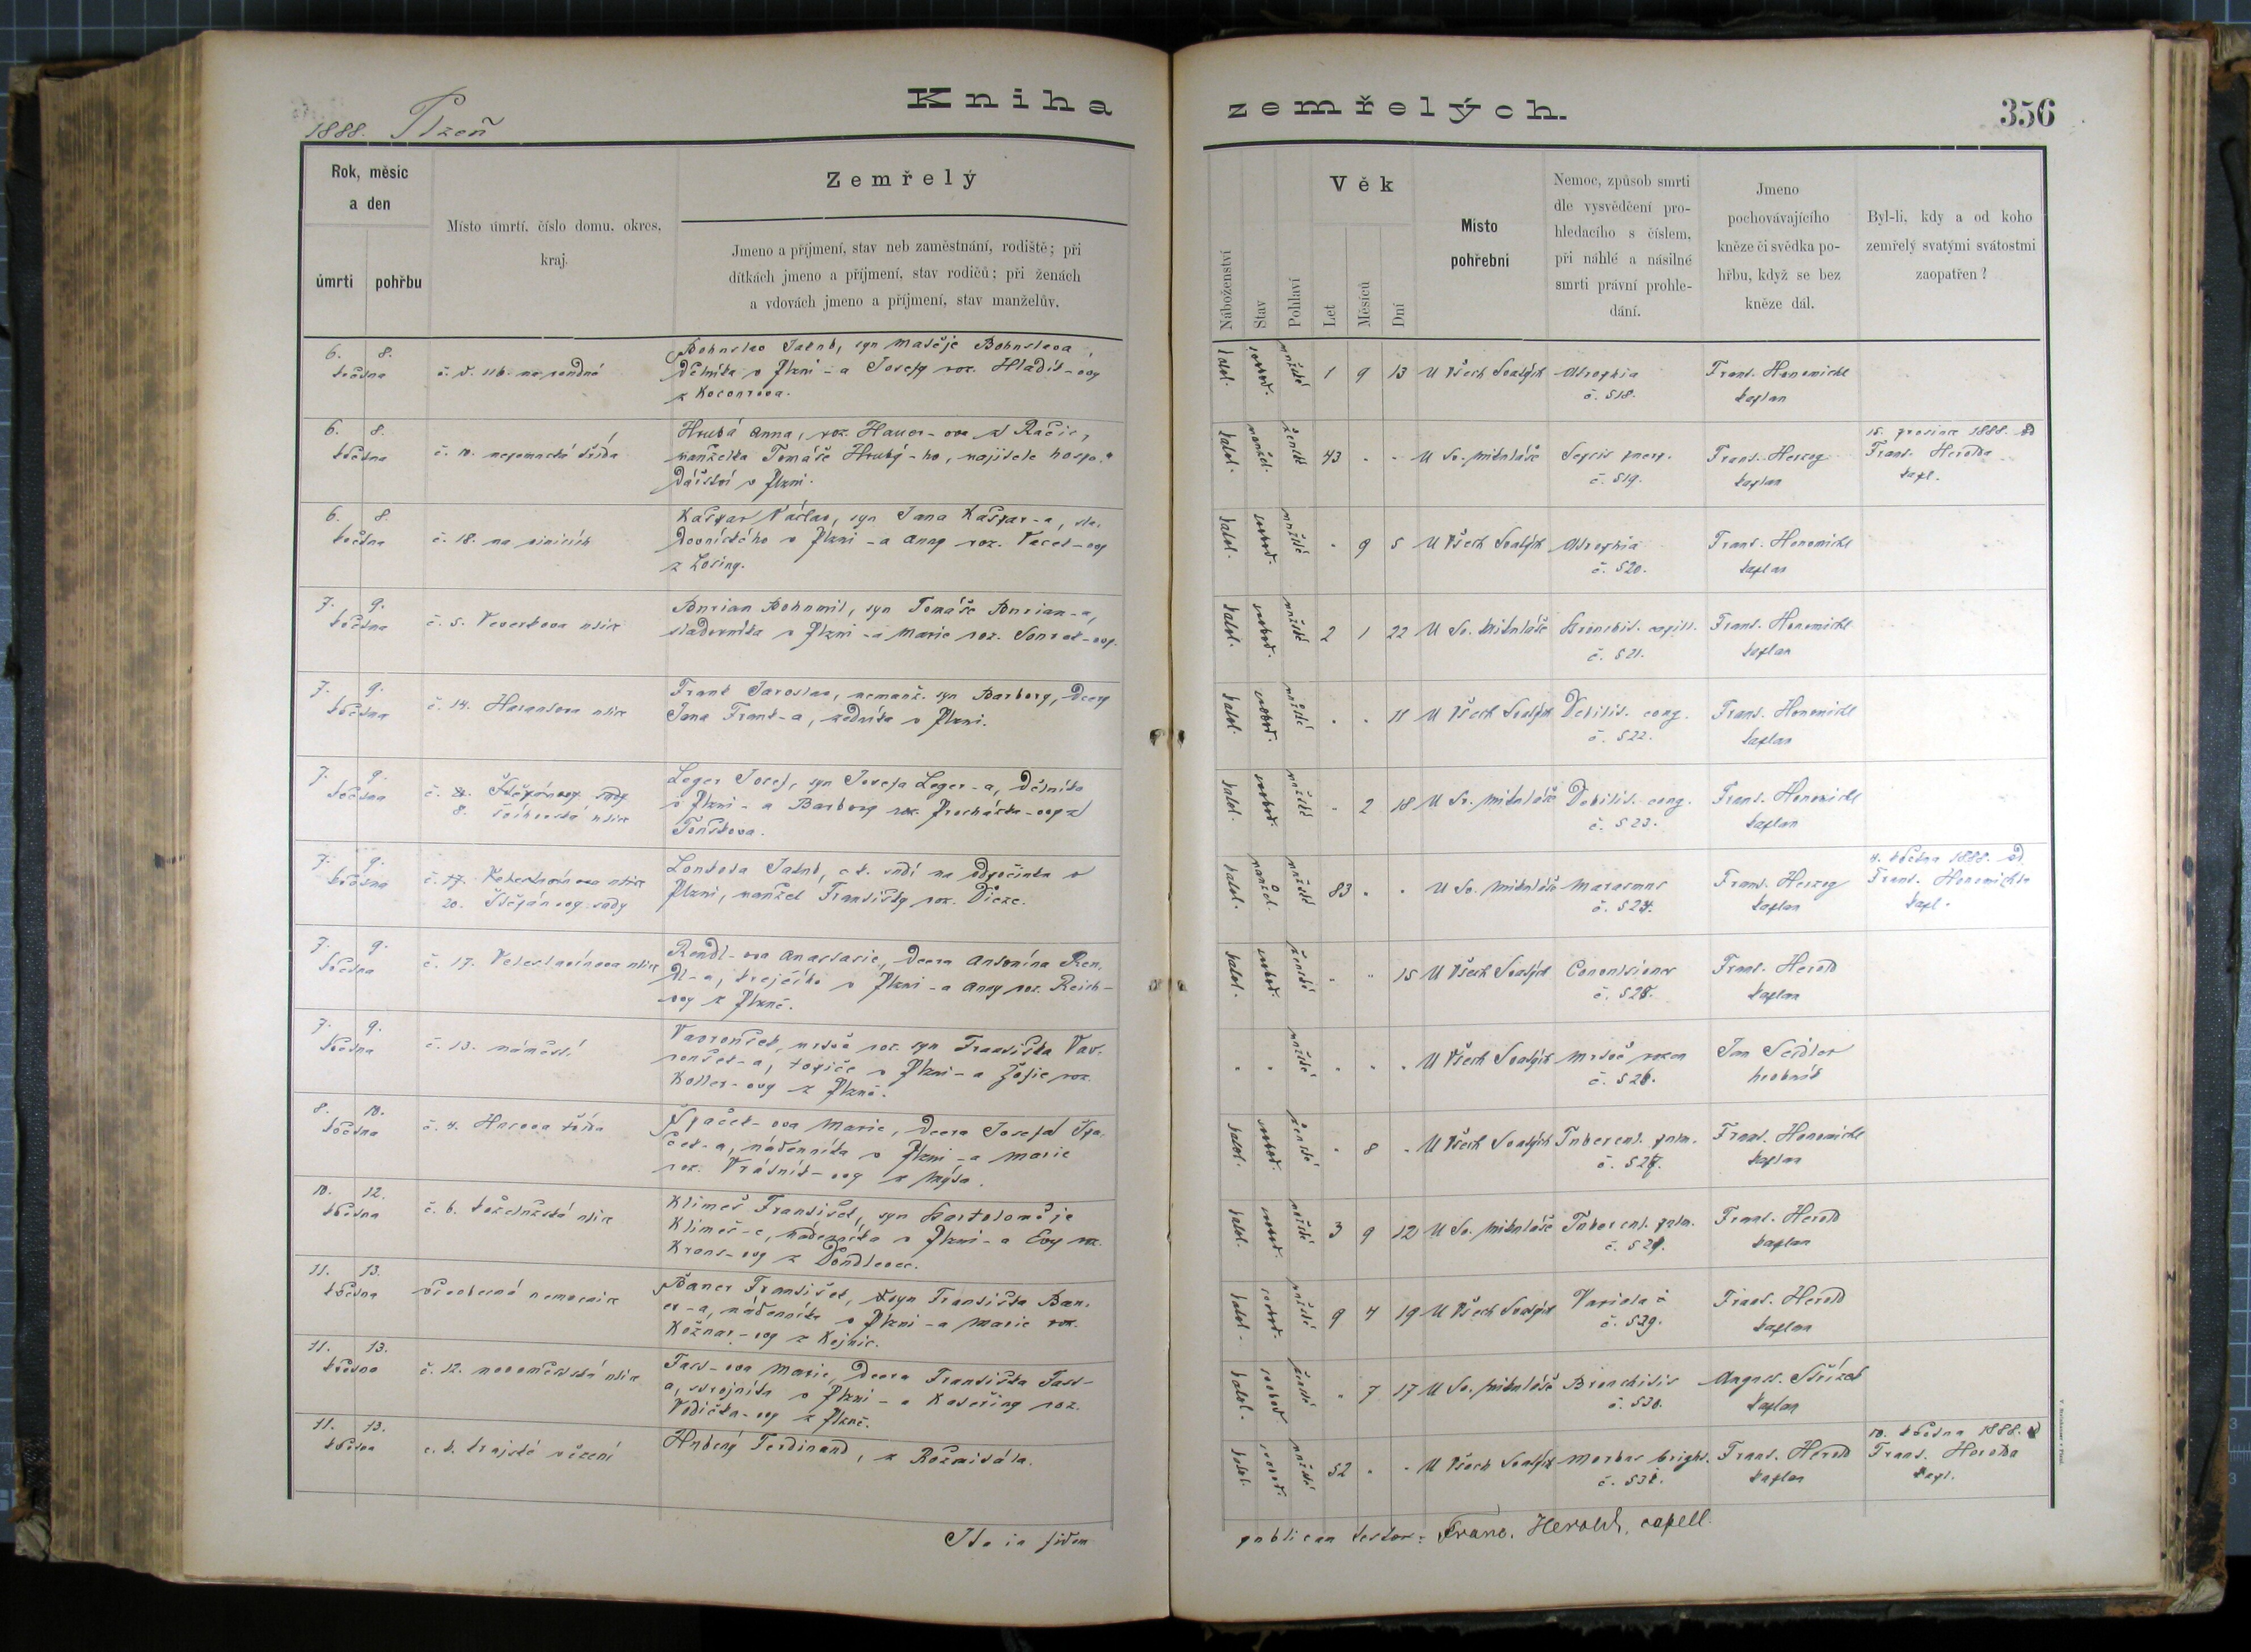 1888. Plzeň
Kniha
zemřelých.
356
Rok, měsíc
a den
úmrtí
pohřbu
Místo úmrtí, číslo domu, okres,
kraj.
Zemřelý
Jmeno a příjmení, stav neb zaměstnání, rodiště; při
dítkách jmeno a příjmení, stav rodičů; při ženách
a vdovách jmeno a příjmení, stav manželův.
Náboženství
Stav
Pohlaví
Věk
Let
Měsíců
Dní
Místo
pohřební
Nemoc, způsob smrti
dle vysvědčení pro-
hledacího s číslem,
při náhlé a násilné
smrti právní prohle-
dání.
Jmeno
pochovávajícího
kněze či svědka po-
hřbu, když se bez
kněze dál.
Byl-li, kdy a od koho
zemřelý svatými svátostmi
zaopatřen?
6. 8.
května
Bohuslav Jakub, syn Matěje Bohuslava,
dělníka v Plzni - a Josefy roz. Hladík-ovy
katol. svobod. mužské 1 9 13 U Všech Svatých Atrophia Frant. Honomichl
č. 518. kaplan
6. 8.
května
č. 10. nepomucká třída
Hrubá Anna, roz. Hauer-ova z Račic,
manželka Tomáše Hrubý-ho, majitele hospo-
dářství v Plzni.
katol. manžel. ženské 43 - - U Sv. Mikuláše Sepsis puerp. Frant. Herzog
č. 519. kaplan
15. prosince 1888. od
Frant. Herolda
kapl.
6. 8.
května
č. 18. na vinicích
Kašpar Václav, syn Jana Kašpar-a, sla-
dovnického v Plzni - a Anny roz. Vacek-ovy
z Losiny.
katol. svobod. mužské - 9 5 U Všech Svatých Atrophia Frant. Honomichl
č. 520. kaplan
7. 9.
května
č. 5. Veverkova ulice
Burian Bohumil, syn Tomáše Burian-a,
sladovníka v Plzni - a Marie roz.
katol. svobod. mužské 2 1 22 U Sv. Mikuláše Bronchit. capill. Frant. Honomichl
č. 521. kaplan
7. 9.
května
č. 14. Harantova ulice
Frank Jaroslav, nemanž. syn Barbory, dcery
Jana Frank-a, zedníka v Plzni.
katol. svobod. mužské - - 11 U Všech Svatých Debilit. cong. Frant. Honomichl
č. 522. kaplan
7. 9.
května
8.
Leger Josef, syn Josefa Leger-a, dělníka
v Plzni - a Barbory roz. Procházka-ovy z
Touškova.
katol. svobod. mužské - 2 18 U Sv. Mikuláše Debilit. cong. Frant. Honomichl
č. 523. kaplan
7. 9.
května
č. 17. Veleslavínova ulice
20. Štěpánovy sady
Jakub, c. k. sudí na odpočinku v
Plzni, manžel Františky roz.
katol. manžel. mužské 83 - - U Sv. Mikuláše Marasmus Frant. Herzog
č. 524. kaplan
4. května 1888. od
Frant. Honomichla
kapl.
7. 9.
května
č. 17. Veleslavínova ulice
Rendl-ova Anastasie, dcera Antonína Ren-
dl-a, krejčího v Plzni - a Anny roz. Reich-
ovy z Plzně.
katol. svobod. ženské - - 15 U Všech Svatých Convulsiones Frant. Herold
č. 525. kaplan
7. 9.
května
č. 13. náměstí
Vavroušek, mrtvě roz. syn Františka Vav-
roušek-a, topiče v Plzni - a Žofie roz.
Koller-ovy z Plzně.
- - mužské - - - U Všech Svatých Mrtvě rozen Jan Seidler
č. 526. hrobník
8. 10.
května
č. 4. Husova třída
Špaček-ova Marie, dcera Josefa Špa-
ček-a, nádenníka v Plzni - a Marie
roz. Vrátník-ovy z Mýta.
katol. svobod. ženské - 8 - U Všech Svatých Tubercul. pulm. Frant. Honomichl
č. 527. kaplan
10. 12.
května
č. 6. koželužská ulice
Klimeš František, syn Bartoloměje
Klimeš-e, nádenníka v Plzni - a Evy roz.
Kraus-ovy z Doudlevec.
katol. svobod. mužské 3 9 12 U Sv. Mikuláše Tubercul. pulm. Frant. Herold
č. 528. kaplan
11. 13.
května
všeobecná nemocnice
Bauer František, syn Františka Bau-
er-a, nádenníka v Plzni - a Marie roz.
Kožnar-ovy z
katol. svobod. mužské 9 4 19 U Všech Svatých Variola Frant. Herold
č. 529. kaplan
11. 13.
května
č. 12. novoměstská ulice
Marie, dcera Františka
a, strojníka v Plzni - a Kateřiny roz.
Vodička-ovy z Plzně.
katol. svobod. ženské - 7 17 U Sv. Mikuláše Bronchitis August. Střízek
č. 530. kaplan
11. 13.
května
c. k. krajské vězení
Hubený Ferdinand, z Rožmitála.
katol. svobod. mužské 52 - - U Všech Svatých Morbus bright. Frant. Herold
č. 531. kaplan
10. května 1888. od
Frant. Herolda
kapl.
Ita in fidem
publicam testor: Franc. Herold, capell.